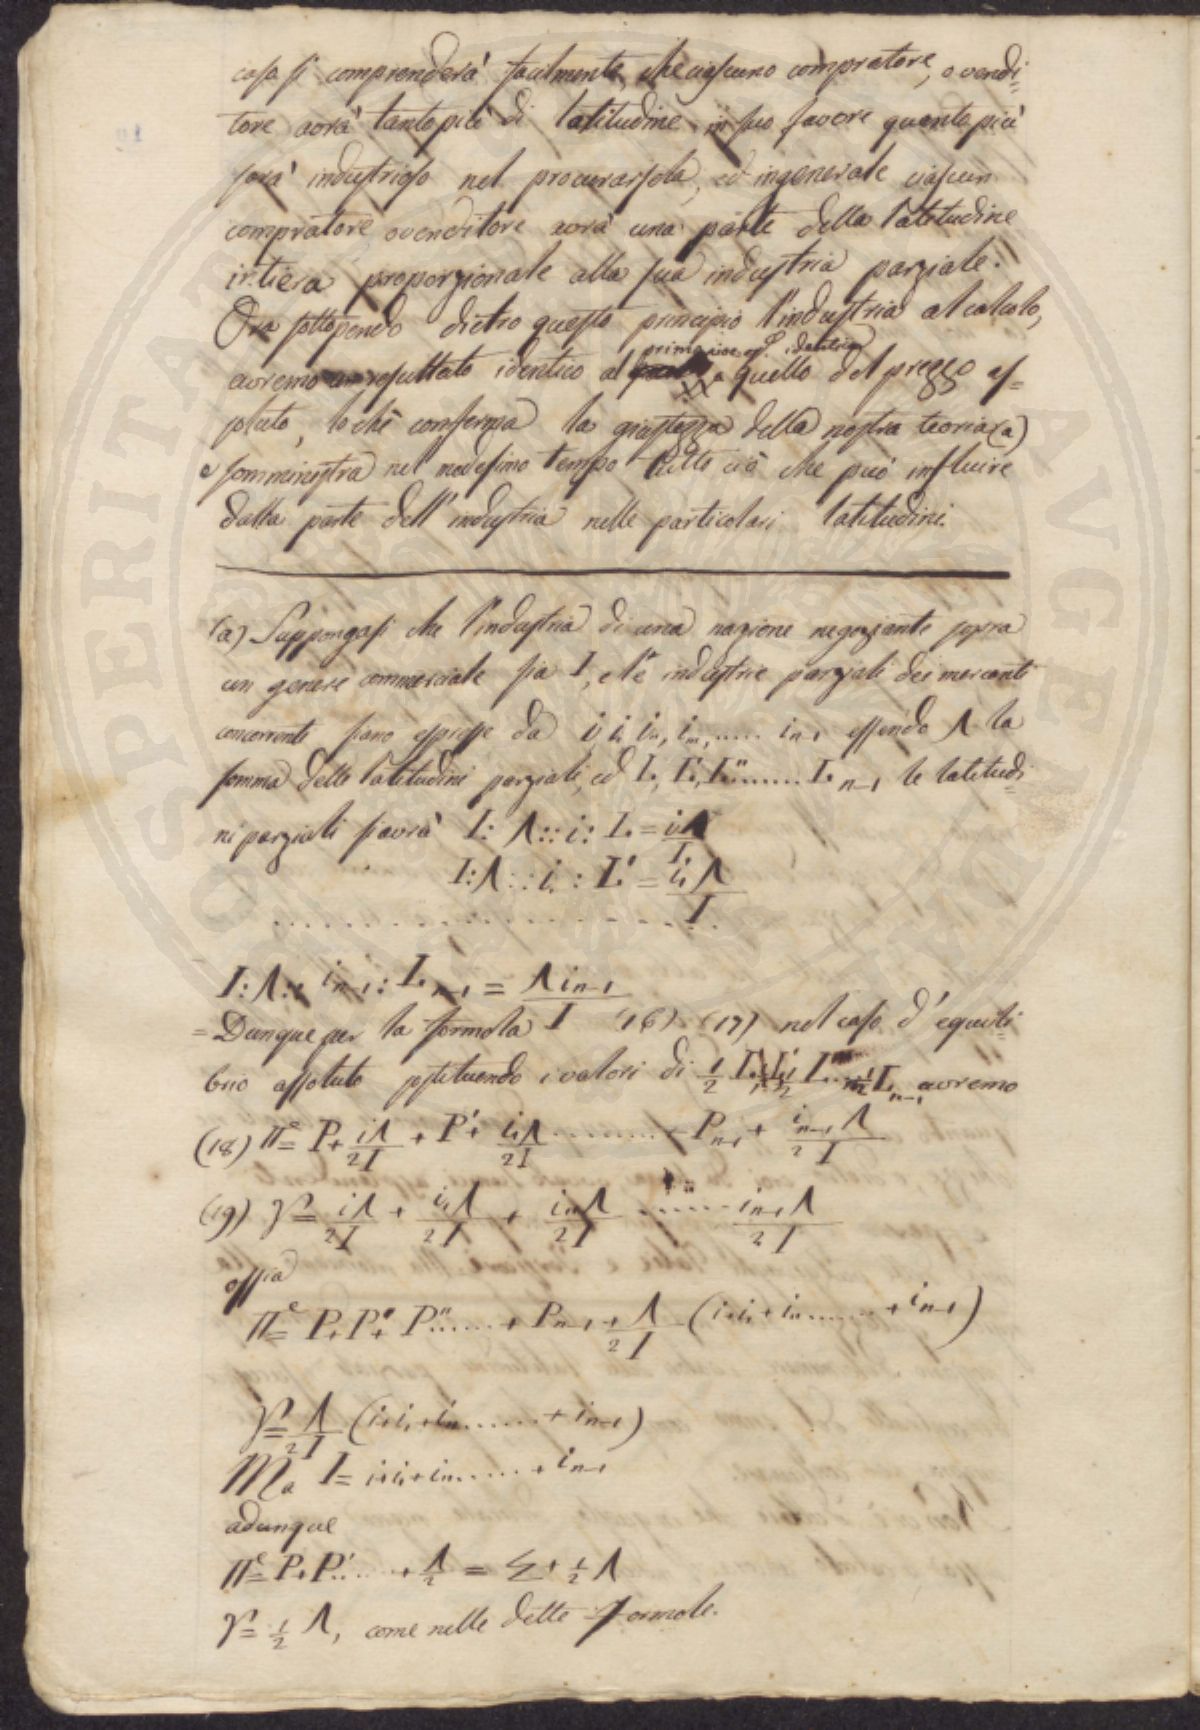 casa si comprenderà facilmente, che ciascuno compratore, o vendi=
tore avrà tanto più di latitudine in suo favore quanto più
sarà industrioso nel procurarsela, ed in generale ciascun
compratore o venditore avrà una parte della latitudine
intiera proporzionale alla sua industria parziale.
Ora sottoponendo dietro questo principio l'industria al calcolo,
avremo un resultato identico al a quello del prezzo as=
soluto, lo chè conferma la giustezza della nostra teoria (a)
e somministra nel medesimo tempo tutto ciò che può influire
dalla parte dell'industria nelle particolari latitudini.
(a) Suppongasi che l'industria di una nazione negoziante sopra
un genere commerciale sia I, e le industrie parziali dei mercanti
concorrenti siano espresse da i, i, i,,, i,,,, ..... in-1 essendo Λ la
somma delle latitudini parziali, ed L, L', L''....... L n-1 le latitudi=
ni parziali si avrà I : Λ :: i : L = iΛ/I
I : Λ :: i, : L' = i,Λ/I
. . . . . . . . . . . . . . . . . . . .
I : Λ :: in-1 : L n-1 = Λ in-1/I
= Dunque per la formola (16) (17) nel caso d'equili=
brio assoluto sostituendo i valori di 1/2 L, 1/2 L' ... 1/2 L n-1 avremo
(18) Π = P + iΛ/2I + P' + i,Λ/2I ......... + Pn-1 + in-1Λ/2I
(19) γ = iΛ/2I + i,Λ/2I + i,,Λ/2I ...... in-1Λ/2I
ossia
Π = P + P' + P''...... + Pn-1 + Λ/2I (i + i, + i,, ....... + in-1)
γ = Λ/2I (i + i, + i,, ....... + in-1)
Ma I = i + i, + i,, ...... + in-1
adunque
Π = P + P' ...... + Λ/2 = Σ + 1/2 Λ
γ = 1/2 Λ, come nelle dette formole.